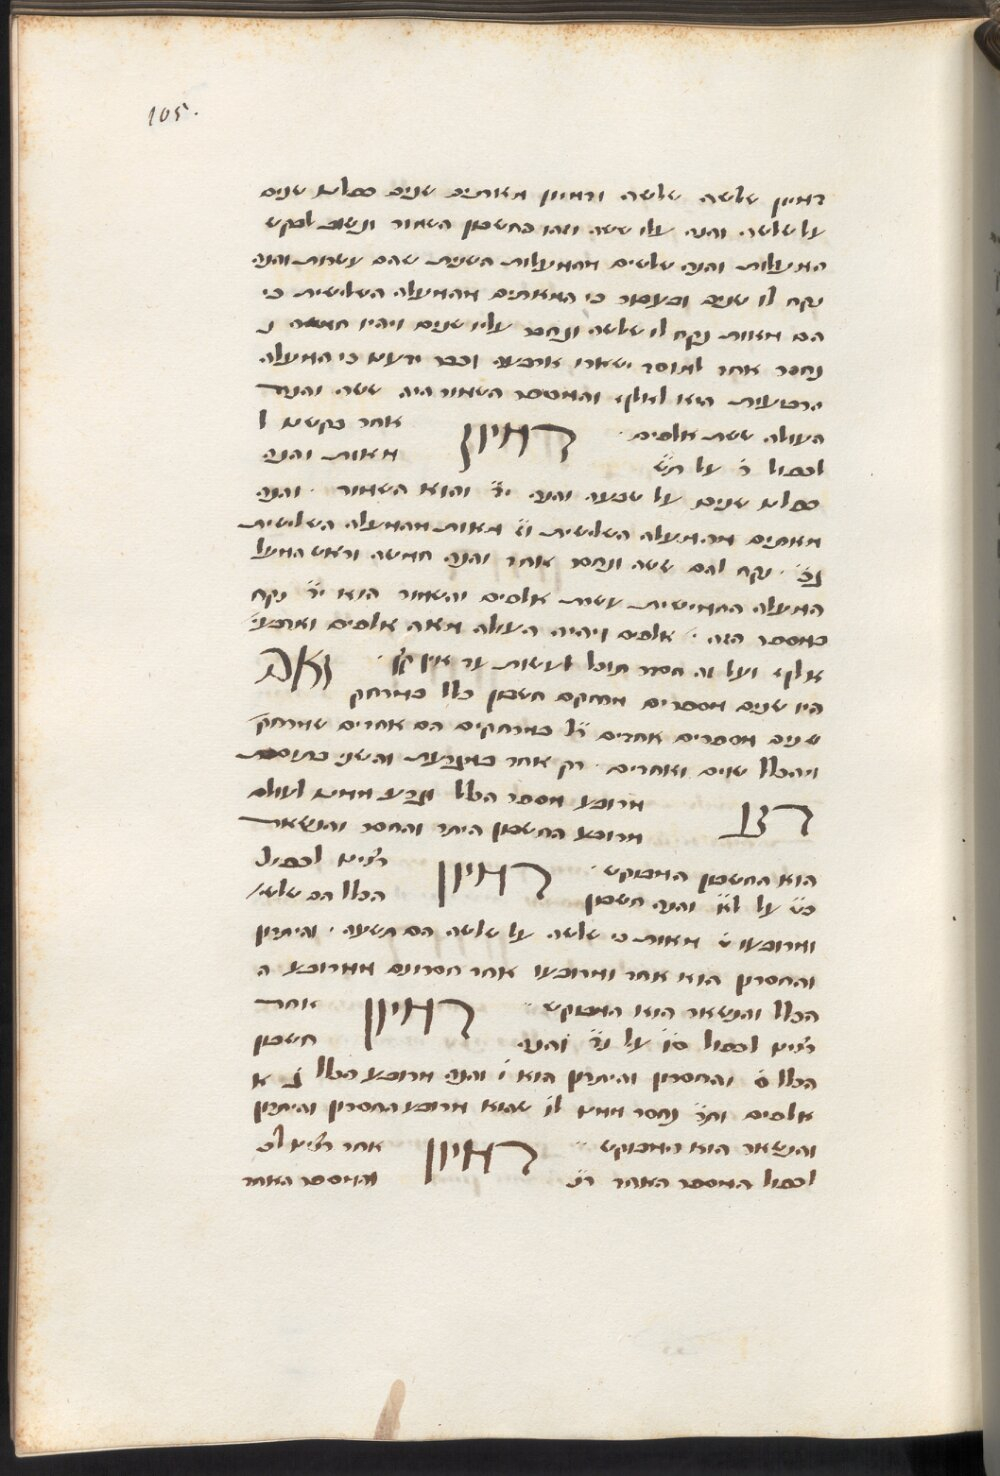 105.
דמיון שלשה שלשה ודמיון מאתים שנים כפלנו שנים
על שלשה והנה עלו ששה וזהו החשבון השמור ונשוב לבקש
המעלות והנה שלשים מהמעלות השנית שהם עשרות והנה
נקח לו שנים ובעבור כי המאתים מהמעלה השלישית כי
הם מאות נקח לו שלשה ונחבר עליו שנים ויהיו חמשה
נחסר אחד לאוסר ישארו ארבעה וכבר ידענו כי המעלה
הרביעית היא לאלף והמספר השמור היה ששה והנה
העולה ששת אלפים דמיון אחר בקשנו ל
לכפול על מאות והנה
כפלנו שנים על שבעה והנה י״ד והוא השמור והנה
מאתים מהמעלה השלישית מאות מהמעלה השלישית
נקח להם ששה ונחסר אחד והנה חמשה וראש המעל
המעלה החמישית עשרת אלפים והשמור הוא י״ד נקח
כמספר הזה אלפים ויהיה העולה מאה אלפים וארבעי
אלף ועל זה הדרך תוכל לעשות עד אין קץ ואם
היו שנים מספרים מרחקם חשבון כלל כמרחק
שנים מספרים אחרים
ויהכלל שנים ואחרים רק אחד במגרעת והשני בתוספת
קח מרובע מספר הכלל וגרע ממנו לעולם
מרובע החשבון היתר והחסר והנשאר
הוא החשבון המבוקש דמיון רצינו לכפול
כ״ט על ל״א והנה חשבון הכלל הם שלשי׳
ומרובעו ט׳ מאות כי שלשה על שלשה הם תשעה והיתרון
והחסרון הוא אחד ומרובעו אחד חסרנום ממרובע ה
הכלל והנשאר הוא המבוקש דמיון אחר
רצינו לכפול על והנה חשבון
הכלל ס׳ והחסרון והיתרון הוא והנה מרובע הכלל ג׳ א
אלפים נחסר ממנו שהוא מרובע החסרון והיתרון
והנשאר הוא המבוקש דמיון אחר רצינו לכ
לכפול המספר האחד והמספר האחר